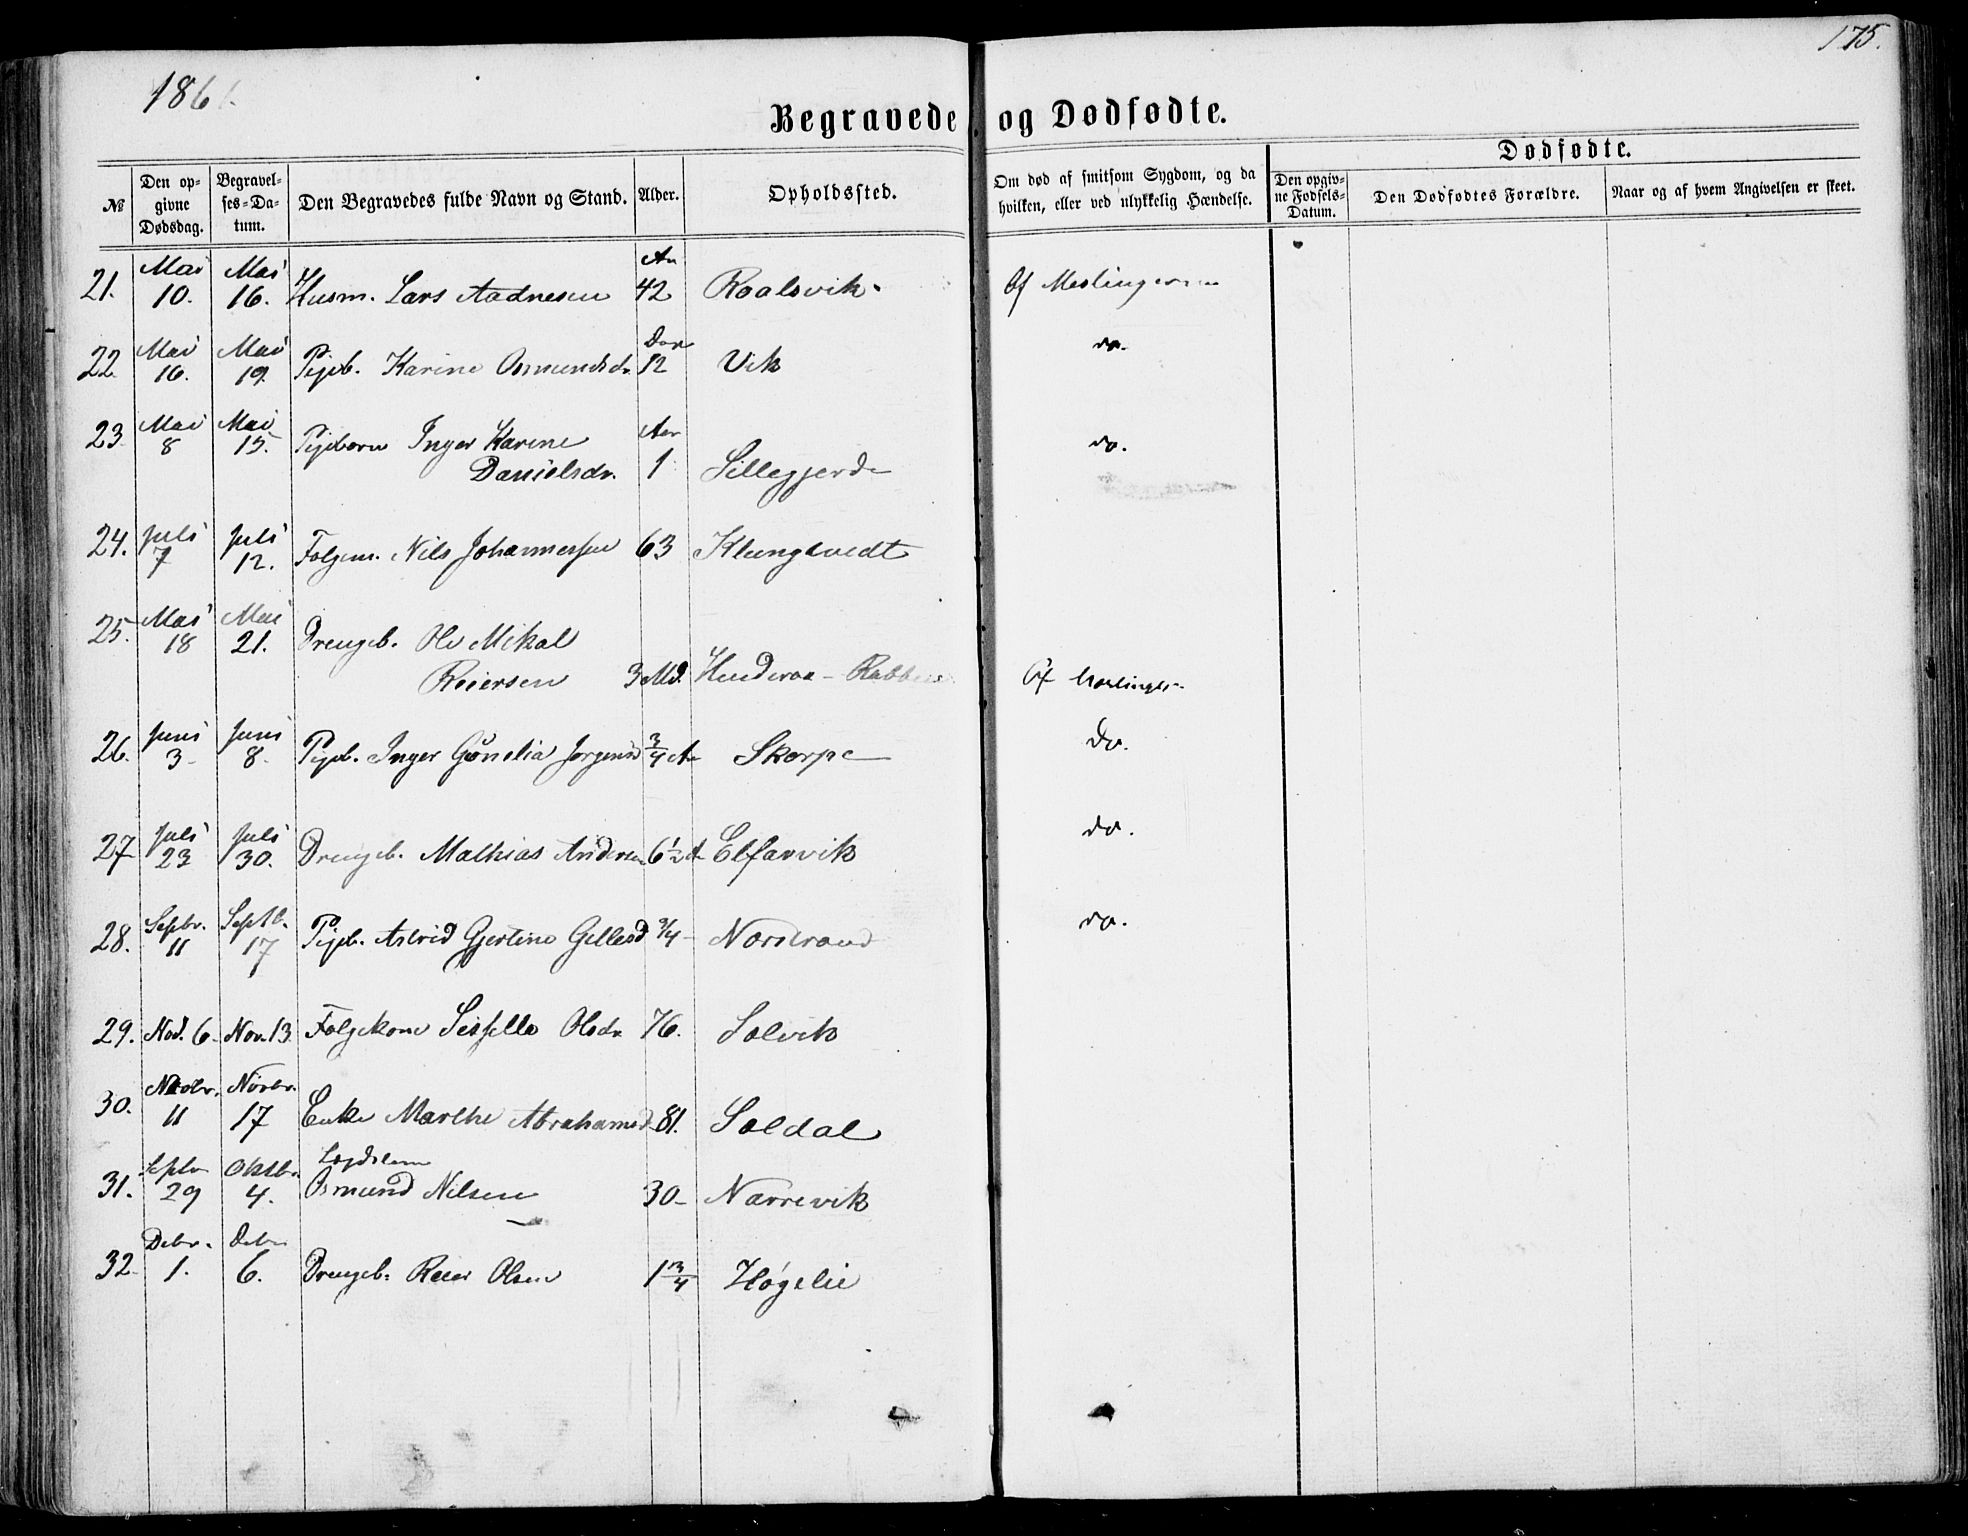 186
175.
Begravede og Dødfødte.
Dødfødte.
№
Den opgivne Dødsdag.
Begravelses-Datum.
Den Begravedes fulde Navn og Stand.
Alder.
Opholdssted.
Om død af smitsom Sygdom, og da hvilken, eller ved ulykkelig Hændelse.
Den opgivne Fødsels-Datum.
Den Dødfødtes Forældre.
Naar og af hvem Angivelsen er skeet.
21. Mai 10. Mai 16. Husm. Lars Aadnesen 42 Roalsvik. Af Meslingerne
22 Mai 16. Mai 19. Pigeb. Karine Osmundsdr. 12 Vik do.
23 Mai 8 Mai 15. Pigebarn Inger Karine
Danielsdr. 1 Sillegjerde do.
24. Juli 7 Juli 12. Folgem. Nils Johannessen 63 Klungtvedt
25. Mai 18 Mai 21. Drengeb. Ole Mikal
Reiersen 3 Md. Henderaa - Af Meslinger
26. Juni 3 Juni 8. Pigeb. Inger Gunelia Jørgensd 3/4 A Skorpe do.
27 Juli 23 Juli 30. Drengeb. Mathias Andersen 6 1/2 A Elfarvik do.
28. Sepbr. 11 Septb. 17 Pigeb. Astrid Gjertine Gellesd 3/4 Norstrand do.
29. Nov. 6 Nov. 13. Folgekone Sisselle Olsdr. 76. Solvik
30. Novbr. 11 Novbr. 17 Enke Marthe Abrahamsd 81. Soldal
31. Septbr 29 Oktbr. 4. Lægdslem
Osmund Nilsen 30 Narrevik
32. Debr. 1. Debr 6. Drengeb. Reier Olsen 1 3/4 Høgelie